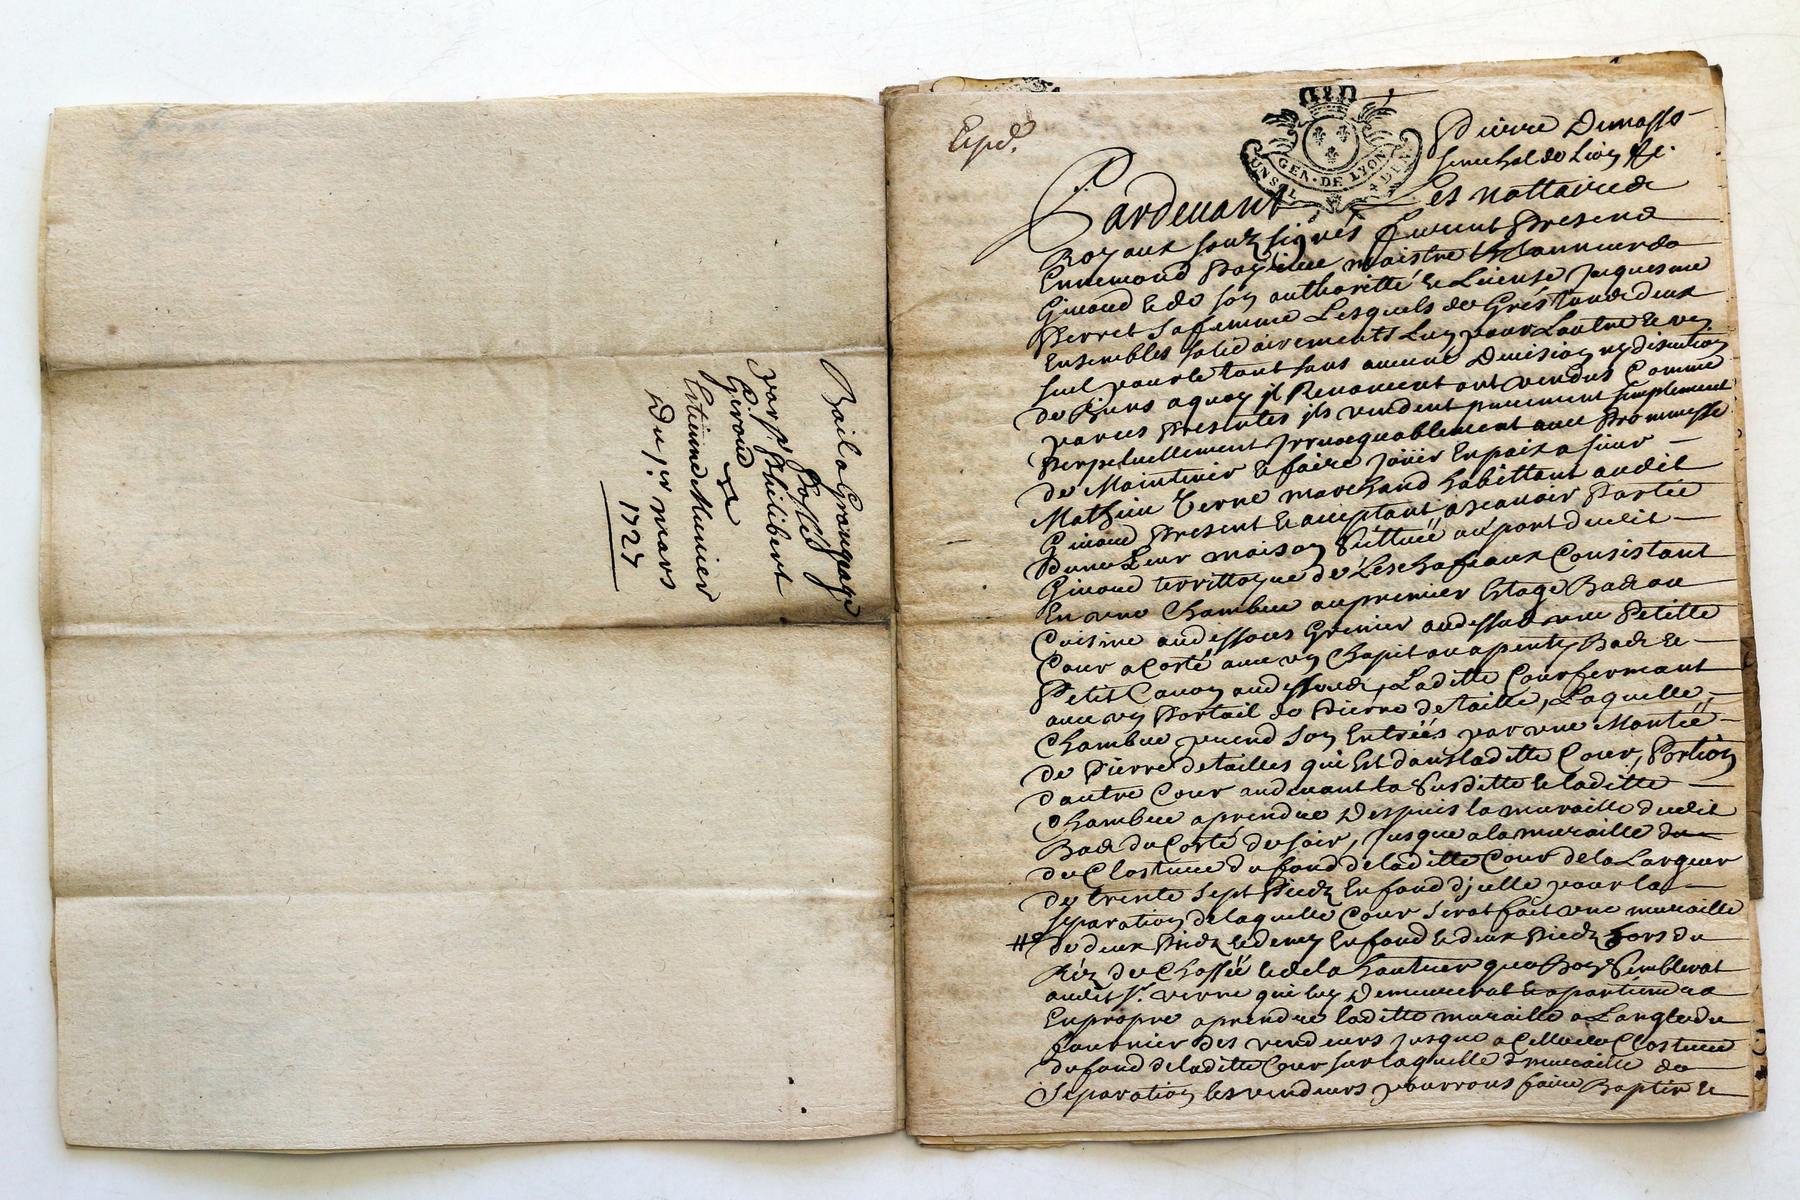 Bail a Grougeage
Posé
par sr. Philibert
Giroud
a
Estienne Munier
Du 1er mars
1727
Expd.
GEN·DE LYON
Pierre Demasso
senechal de Lion &c.
Pardevant Les nottaires
Royaux souzsignés furent Presens
Ennemond maistre Tanneur de
Givord & de son authoritté & License Jacquesme
Perret sa femme Lesquels de Gré tous deux
Ensembles solidairement Lun pour Lautre & un
seul pour le tout sans aucune Division ny discution
de Biens a quoy il Renoncent ont vendus Comme
par ces Presentes ils vendent purement simplement
Perpetuellement Irrevoquablement avec Prommesse
de Maintenir & faire Joüir En paix a sieur
Mathieu Verne marchand habittant audit
Givord Present & acceptant a scavoir Partie
Dune Leur maison Sittuée au port dudit
Givord territtoire de Consistant
En une Chambre au premier Etage Bas ou
Cuisine audessous Grenier audessus une Petitte
Cour a Costé avec un Chapit ou apenty Bas &
Petit Cavon audessous, Laditte Cour fermant
avec un Portail de Pierre de taille, Laquelle
Chambre prend son Entrées par une Montée
de Pierre de tailles qui Est dans laditte Cour, Portion
dautre Cour audevant la Susditte & laditte
Chambre a prendre Despuis la muraille dudit
Bas du Costé de soir, Jusque a la muraille du
de Closture du fond de laditte Cour de la Largeur
de trente sept Piedz En fond d'jcelle pour la
separation de laquelle Cour serat fait une muraille
de deux Piedz & demy En fond & deux Piedz hors du
Réz de Chossée & de la hauteur que Bon Semblerat
audit sr. verne qui luy Demeurerat & apartiendra
En propre a prendre laditte muraille a Langle du
fournier des vendeurs jusque a Celle de Closture
du fond de laditte Cour sur laquelle muraille de
Separation les vendeurs pourront faire Baptir &